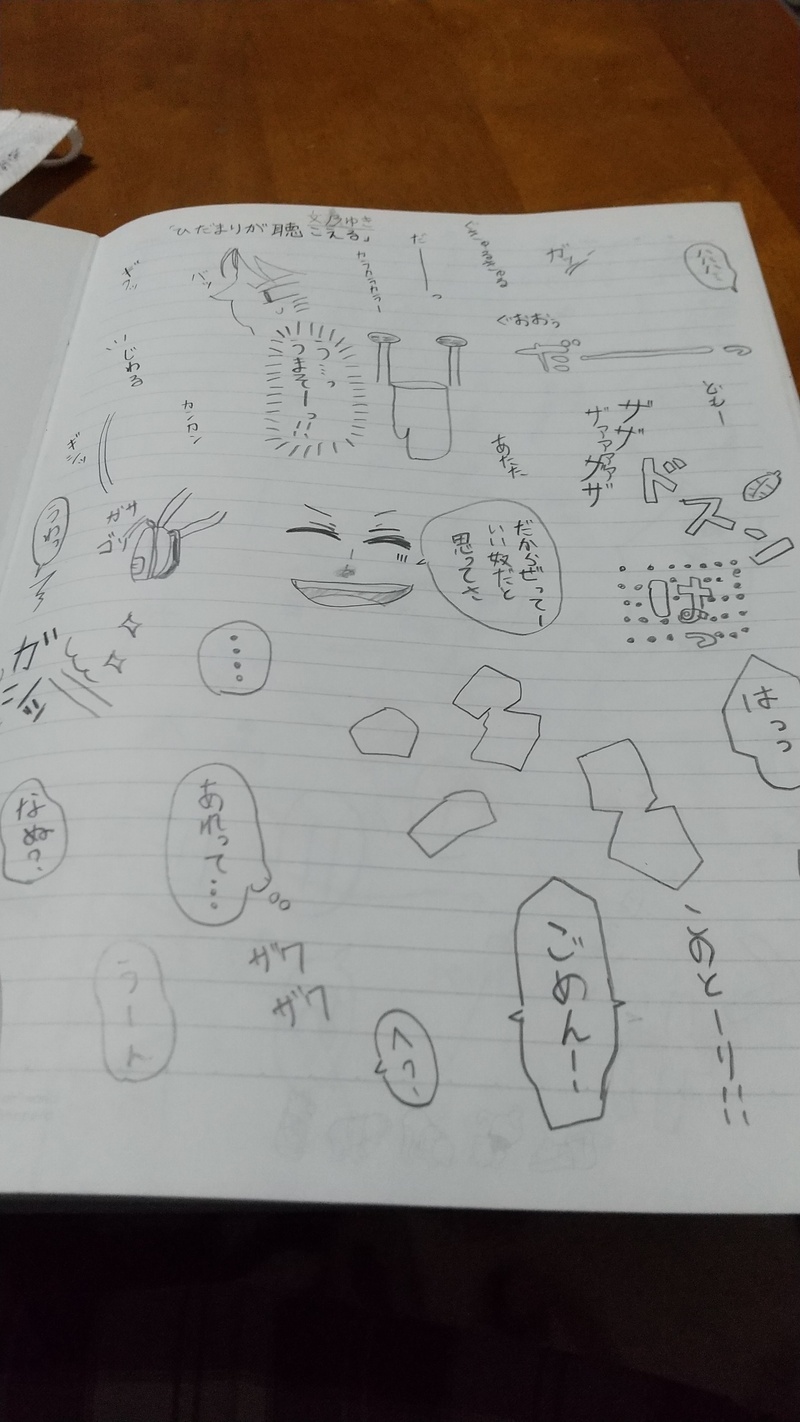 文乃ゆき
「ひだまりが聴こえる」
だーっ
カラカラカラー
ぐぎゅるるぎゅる
ガッ
バッ
ギクッ
ぐおおっ
じわる
うっ…っ
うまそーっ!!
カンカン
ギシッ
あたた
どもー
ザザ
ザァァァァザザ
ドスン
うわっ
ガサ
ゴソ
だからぜってー
いい奴だと
思ってさ
ほ
ガシッ
....
はっっ
なぬっ
あれって…
ごめんー!
そのとーり!!
うーん
ザワ
ザワ
へっ